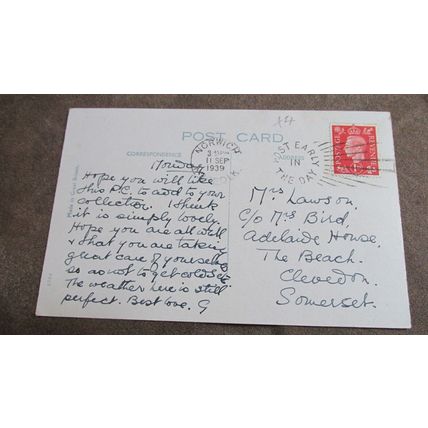 x4
POST CARD
CORRESPONDENCE
ADDRESS
NORWICH
11 SEP
1939
POST EARLY
IN
THE DAY
POSTAGE
REVENUE
Made in Great Britain
Monday
Hope you will like
this P.C. to add to your
collection. I think
it is simply lovely.
Hope you are all well
& that you are taking
great care of yourselves
so as not to get colds etc
The weather here is still
perfect. Best love. G
Mrs Lawson,
C/o Mrs Bird,
Adelaide House,
The Beach.
Clevedon.
Somerset.